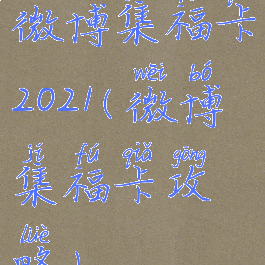 微博集福卡
2021(
wēi bó
微博
jí fú qiǎ gōng
集福卡攻
lüè